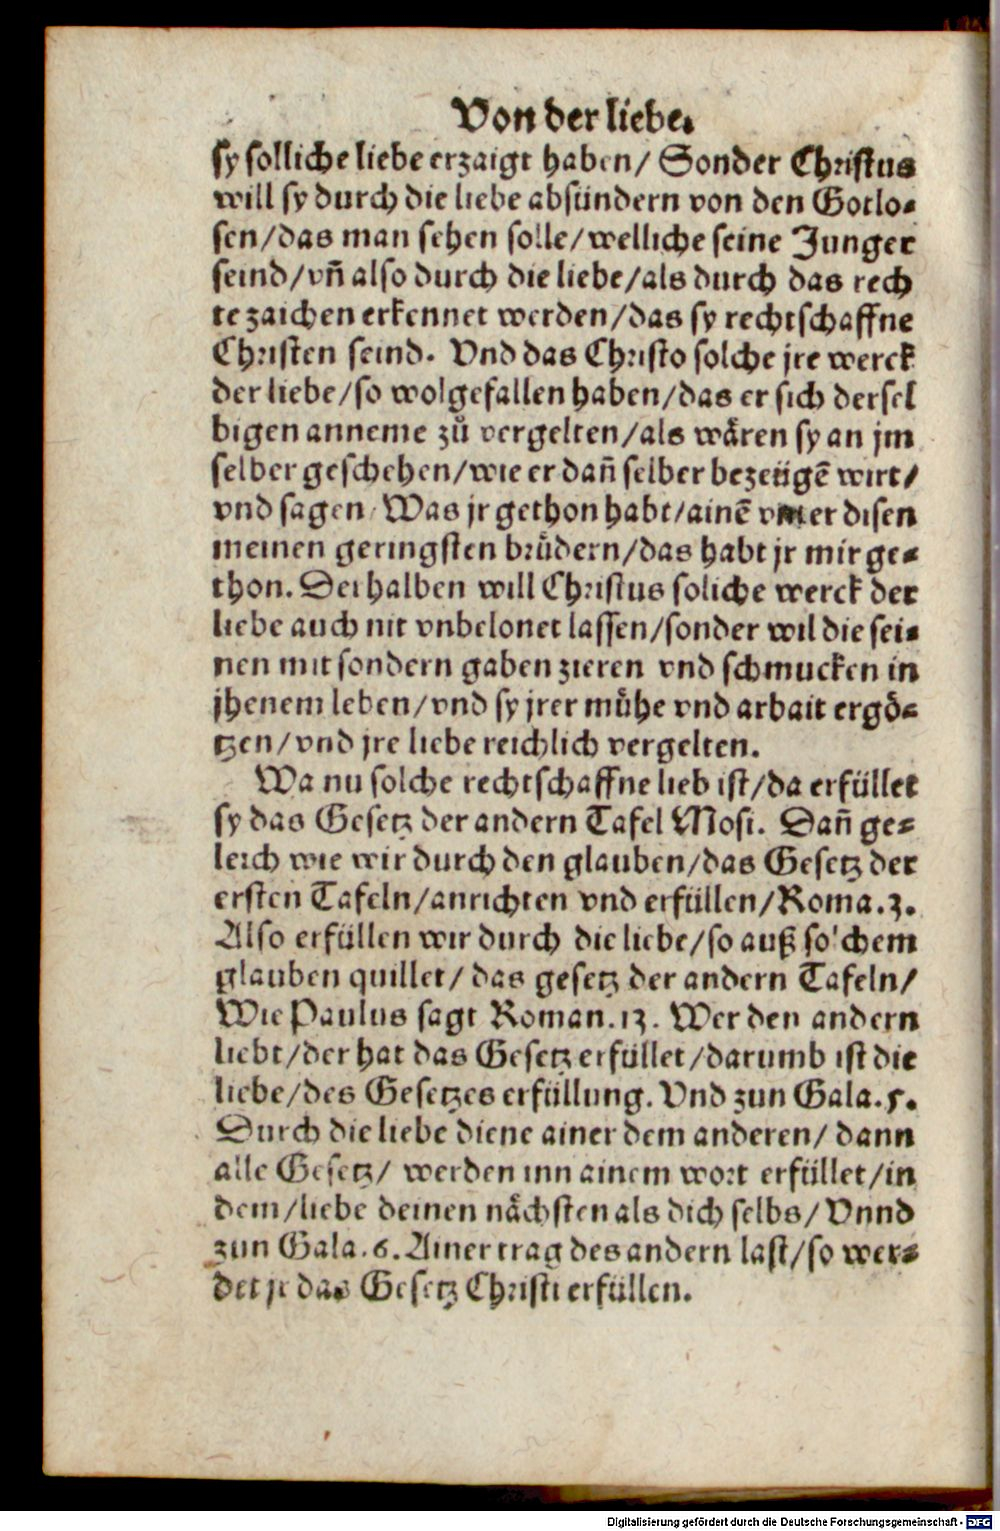 Von der liebe.
sy solliche liebe erzaigt haben/ Sonder Christus
will sy durch die liebe absündern von den Gotlo-
sen/das man sehen solle/welliche seine Junger
seind/vñ also durch die liebe/als durch das rech
te zaichen erkennet werden/das sy rechtschaffne
Christen seind. Vnd das Christo solche jre werck
der liebe/so wolgefallen haben/das er sich dersel
bigen anneme zů vergelten/als wåren sy an jm
selber geschehen/wie er dañ selber bezeügẽ wirt/
vnd sagen/ Was jr gethon habt/ainẽ vnter disen
meinen geringsten brůdern/das habt jr mir ge-
thon. Dethalben will Christus soliche werck der
liebe auch nit vnbelonet lassen/sonder wil die sei-
nen mit sondern gaben zieren vnd schmucken in
jhenem leben/vnd sy jrer můhe vnd arbait ergö-
tzen/vnd jre liebe reichlich vergelten.
Wa nu solche rechtschaffne lieb ist/da erfüllet
sy das Gesetz der andern Tafel Mosi. Dañ ge-
leich wie wir durch den glauben/das Gesetz der
ersten Tafeln/anrichten vnd erfüllen/Roma.3.
Also erfüllen wir durch die liebe/so auß solchem
glauben quillet/ das gesetz der andern Tafeln/
Wie Paulus sagt Roman.13. Wer den andern
liebt/der hat das Gesetz erfüllet/darumb ist die
liebe/des Gesetzes erfüllung. Vnd zun Gala.5.
Durch die liebe diene ainer dem anderen/ dann
alle Gesetz/ werden inn ainem wort erfüllet/in
dem/liebe deinen nåchsten als dich selbs/ Vnnd
zun Gala.6. Ainer trag des andern last/so wer-
det jr das Gesetz Christi erfüllen.
Digitalisierung gefördert durch die Deutsche Forschungsgemeinschaft - DFG